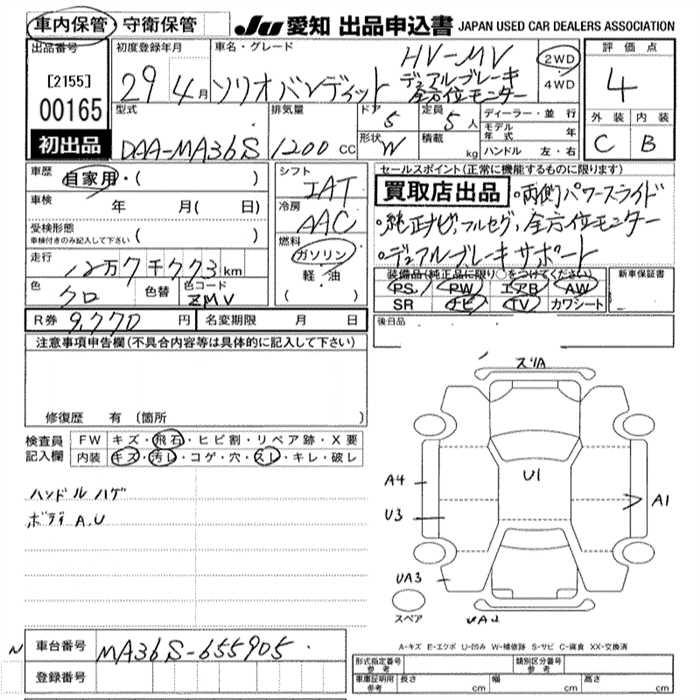 車内保管 守衛保管
JU 愛知 出品申込書 JAPAN USED CAR DEALERS ASSOCIATION
出品番号
[2155]
00165
初出品
初度登録年月
29年4月
車名・グレード
ソリオバンディット
HV-MV
デュアルブレーキ
全方位モニター
2WD
4WD
評価点
4
外装 内装
C B
型式
DAA-MA36S
排気量
1200 cc
ドア
5
定員
5人
形状
W
積載
kg
ディーラー・並行
モデル年式 年
ハンドル 左・右
車歴
自家用・( )
車検 年 月( 日)
受検形態
車検付きのみ記入して下さい ( )
走行
12万7千773km
色
クロ
色替
色コード
ZMV
シフト
IAT
冷房
AAC
燃料
ガソリン
軽・油
( )
R券 9,770 円 名変期限 月 日
セールスポイント(正常に機能するものに限ります)
買取店出品 ・両側パワースライド
・純正ナビ,フルセグ,全方位モニター
・デュアルブレーキサポート
装備品(純正品に限り○をつけてください)
PS PW エアB AW
SR ナビ TV カワシート
新車保証書
後日品
注意事項申告欄(不具合内容等は具体的に記入して下さい)
修復歴 有(箇所 )
検査員記入欄
FW キズ・飛石・ヒビ割・リペア跡・X要
内装 キズ・汚レ・コゲ・穴・スレ・キレ・破レ
ハンドルハゲ
ボディ A.U
スリA
U1
A4
U3
A1
UA3
UA2
スペア
A-キズ E-エクボ U-凹み W-補修跡 S-サビ C-腐食 XX-交換済
N 車台番号 MA36S-655905
登録番号
形式指定番号
参考
類別区分番号
参考
車庫証明用
参考
長さ cm 幅 cm 高さ cm